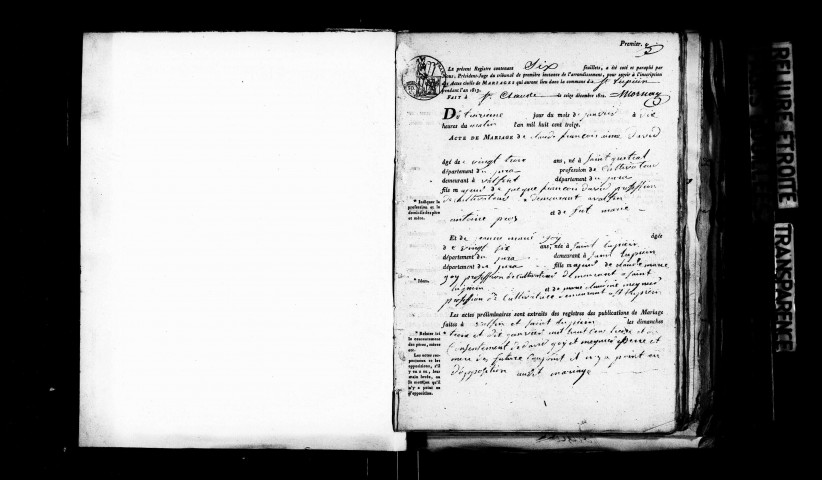 Premier.
Le présent Registre contenant Six feuillets, a été coté et paraphé par
Nous, Président-Juge du tribunal de première instance de l'arrondissement, pour servir à l'inscription
des Actes civils de MARIAGES qui auront lieu dans la commune de St lupicin
pendant l'an 1813.
FAIT à St. Claude le seize décembre 1812. Mornay
Du treizieme jour du mois de janvier à dix
heures du matin l'an mil huit cent treize.
ACTE DE MARIAGE de claude françois david
âgé de vingt trois ans, né à Saint
département du jura profession de Cultivateur
demeurant à valfin département du jura
fils majeur de jacque francois david profession
de Cultivateur demeurant a valfin
* Indiquer la profession et le domicile des père et mère.
antoine et de fut marie
Et de jeanne marie goy âgée
de vingt six ans, née à Saint lupicin
département du jura demeurant à Saint lupicin
département du jura fille majeure de claude marie
goy profession de Cultivateur demeurant a Saint
* Idem.
lupicin et de marie claudine meynier
profession de Cultivatrice demeurant a St lupicin
Les actes préliminaires sont extraits des registres des publications de Mariage
faites à valfin et Saint lupicin les dimanches
* Relater ici le consentement des pères, mères etc.
Les actes respectueux et les oppositions, s'il y en a eu, leur main levée, ou la mention qu'il n'y a point eu d'opposition.
trois et dix janvier mil huit cent treize et du
Consentement de david goy et meynier pere et
mere des future Conjoint et il n y a point eu
d'opposition audit mariage
RELIURE ETROITE
TRANSPARENCE